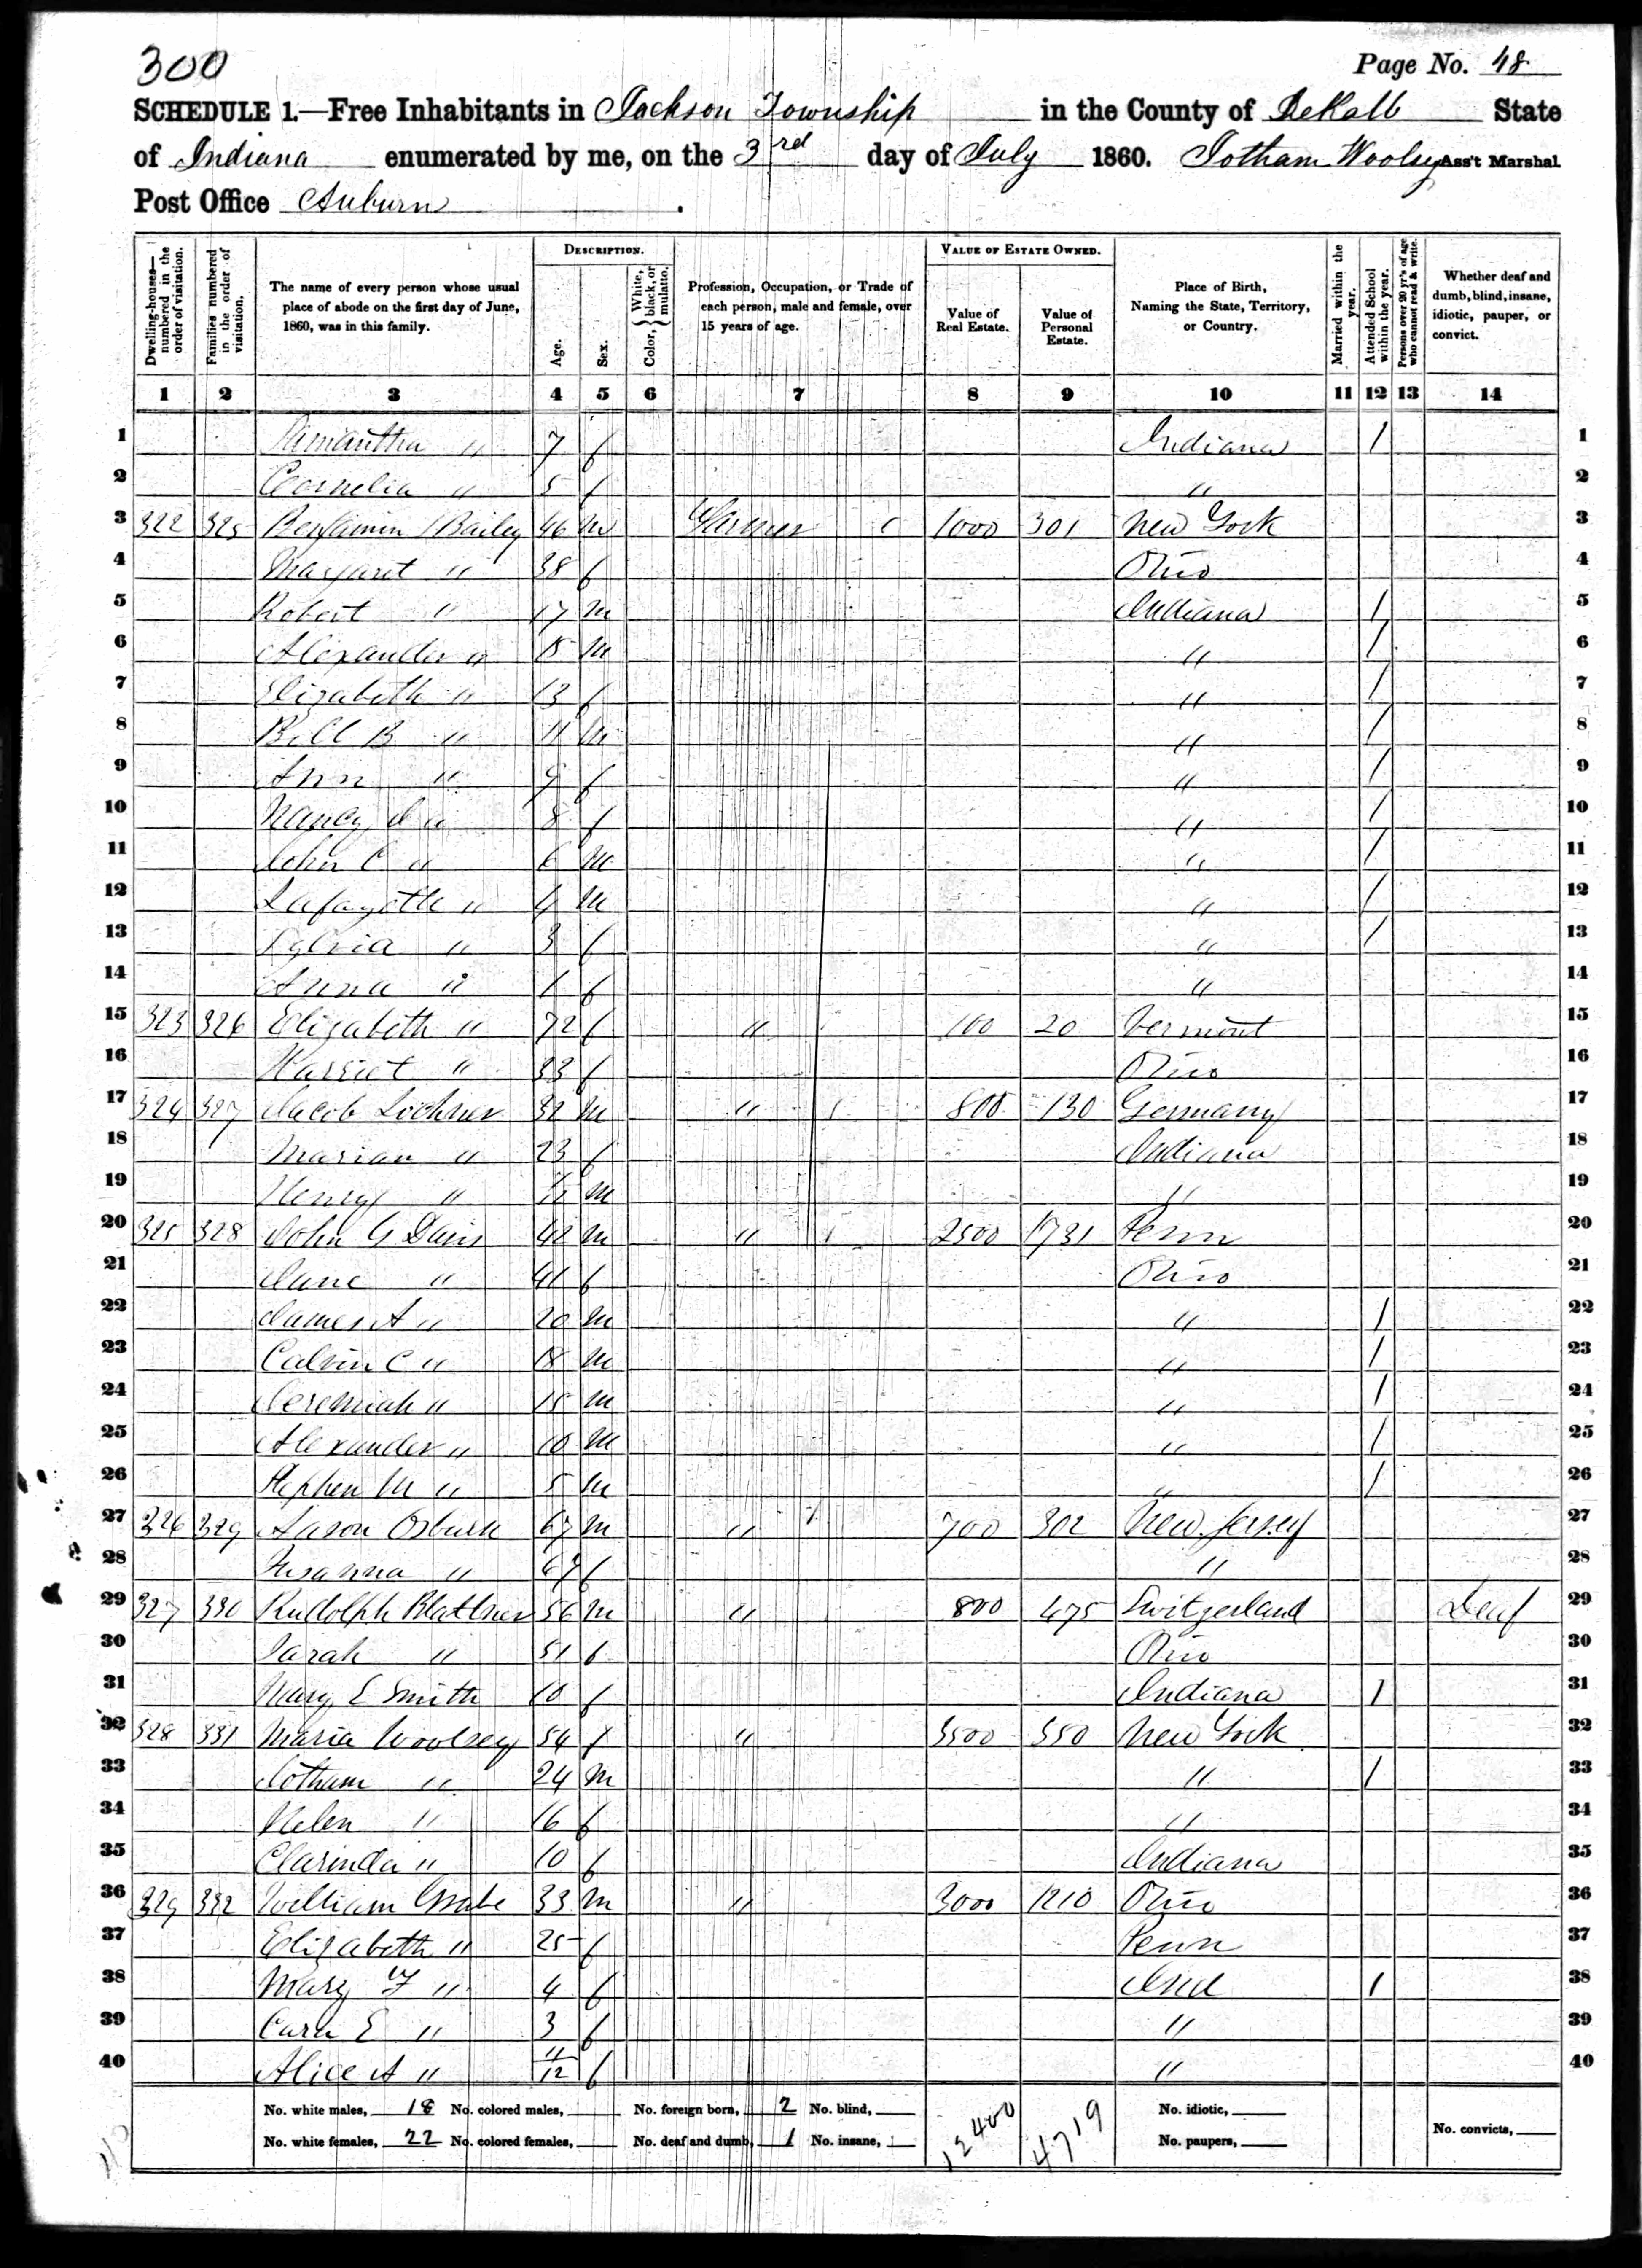 300
Page No. 48
SCHEDULE 1.—Free Inhabitants in Jackson Township in the County of DeKalb State
of Indiana enumerated by me, on the 3rd day of July 1860. Jotham Woolsey Ass't Marshal
Post Office Auburn.
Dwelling-houses—numbered in the order of visitation.
Families numbered in the order of visitation.
The name of every person whose usual place of abode on the first day of June, 1860, was in this family.
DESCRIPTION.
Age.
Sex.
Color, { White, black, or mulatto.
Profession, Occupation, or Trade of each person, male and female, over 15 years of age.
VALUE OF ESTATE OWNED.
Value of Real Estate.
Value of Personal Estate.
Place of Birth, Naming the State, Territory, or Country.
Married within the year.
Attended School within the year.
Persons over 20 y'rs of age who cannot read & write.
Whether deaf and dumb, blind, insane, idiotic, pauper, or convict.
1 2 3 4 5 6 7 8 9 10 11 12 13 14
1 Samantha " 7 f Indiana / 1
2 Cornelia " 5 f " 2
3 322 325 Benjamin Bailey 46 m Farmer 1000 301 New York 3
4 Margaret " 38 f Ohio 4
5 Robert " 17 m Indiana / 5
6 Alexander " 15 m " / 6
7 Elizabeth " 13 f " / 7
8 Bill B " 11 m " / 8
9 Ann " 9 f " / 9
10 Nancy " 8 f " / 10
11 John C " 6 m " / 11
12 Lafayette " 4 m " / 12
13 Sylvia " 3 f " / 13
14 Anna " 1 f " 14
15 323 326 Elizabeth " 72 f " 100 20 Vermont 15
16 Harriet " 33 f Ohio 16
17 324 327 Jacob Lochner 32 m " 800 130 Germany 17
18 Marian " 23 f Indiana 18
19 Henry " m " 19
20 325 328 John G Davis 42 m " 2500 1731 Penn 20
21 Jane " 41 f Ohio 21
22 James A " 20 m " / 22
23 Calvin C " 18 m " / 23
24 Jeremiah " 15 m " / 24
25 Alexander " 10 m " / 25
26 Stephen M " 5 m " / 26
27 326 329 Aason Osburn 67 m " 700 302 New Jersey 27
28 Susanna " 67 f " 28
29 327 330 Rudolph Blattner 56 m " 800 475 Switzerland Deaf 29
30 Sarah " 51 f Ohio 30
31 Mary E Smith 10 f Indiana / 31
32 328 331 Maria Woolsey 54 f " 3500 550 New York 32
33 Jotham " 24 m " / 33
34 Helen " 16 f " 34
35 Clarinda " 10 f Indiana 35
36 329 332 William Grube 33 m " 3000 1210 Ohio 36
37 Elizabeth " 25 f Penn 37
38 Mary F " 4 f Ind / 38
39 Cara E " 3 f " 39
40 Alice A " 11/12 f " 40
No. white males, 18 No. colored males, No. foreign born, 2 No. blind, 12400 4719 No. idiotic,
No. white females, 22 No. colored females, No. deaf and dumb, 1 No. insane, No. paupers, No. convicts,